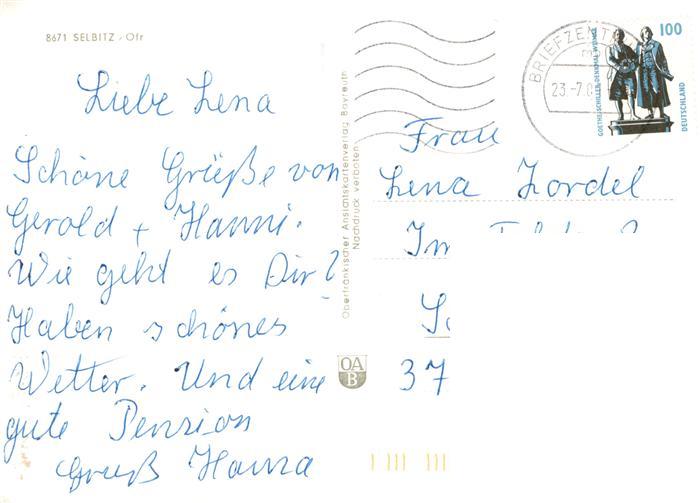 8671 SELBITZ, Ofr
Liebe Lena
Schöne Grüße von
Gerold + Hanni.
Wie geht es Dir?
Haben schönes
Wetter. Und eine
gute Pension
Gruß Hanna
Oberfränkischer Ansichtskartenverlag Bayreuth
Nachdruck verboten
OA
B
BRIEFZENT
23.-7.0
100
GOETHE-SCHILLER-DENKMAL WEIMAR
DEUTSCHLAND
Frau
Lena Zordel
Im
37